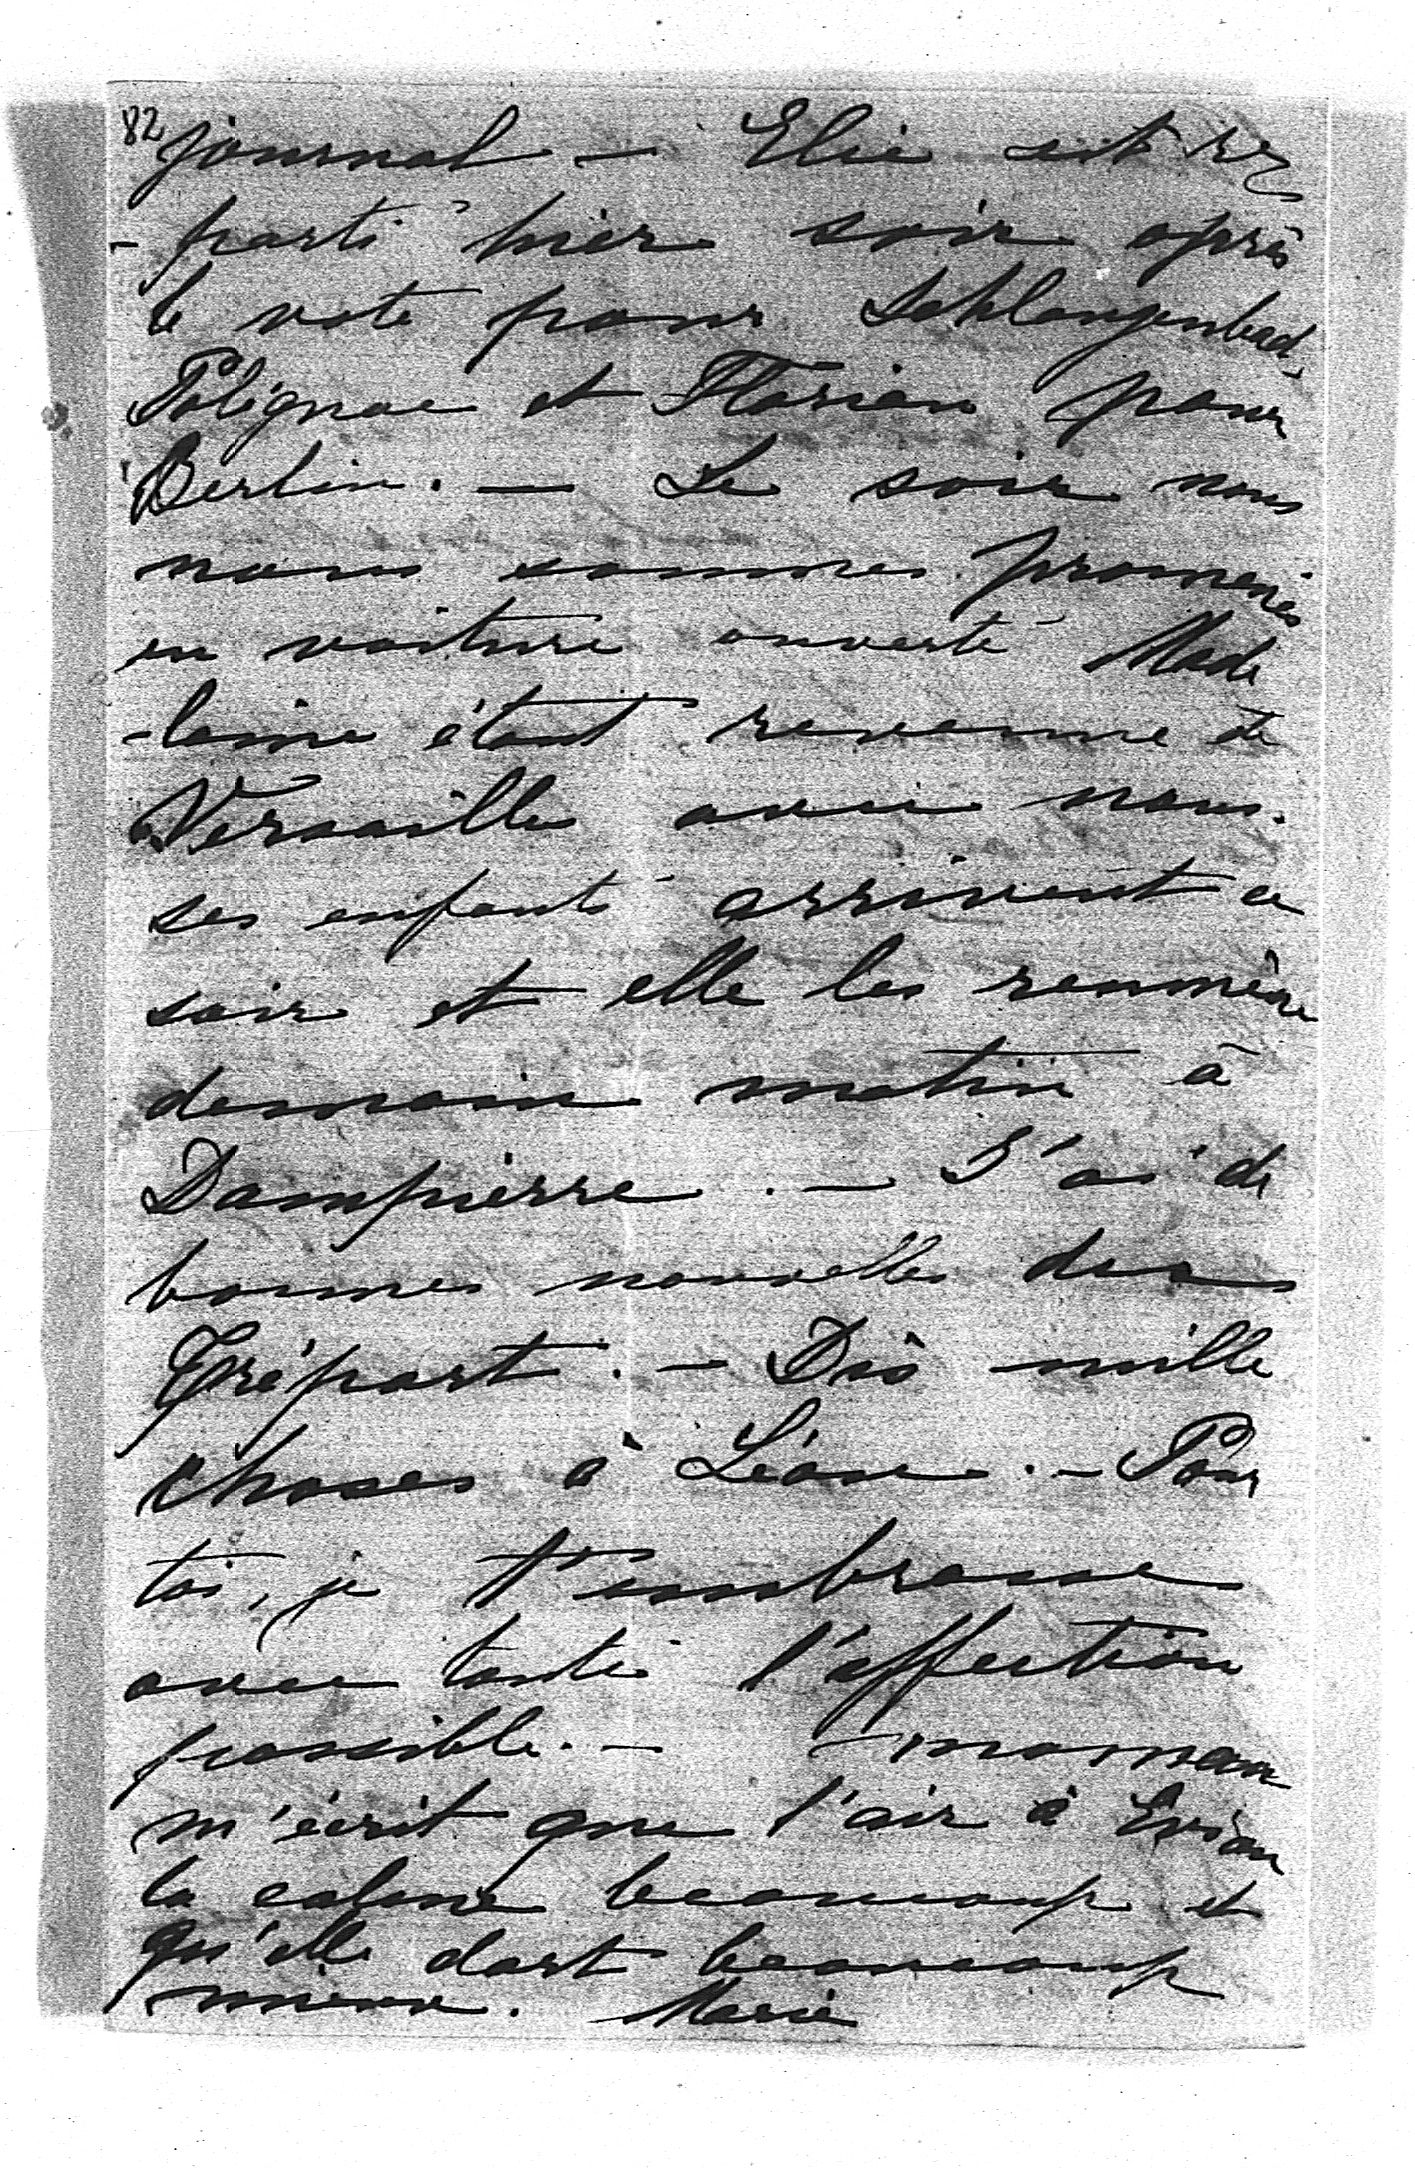 82 journal — Elie est re
- parti hier soir après
le vote pour Schlangenbad,
Polignac et Florian pour
Berlin. — Le soir nous
nous sommes promenés
en voiture ouverte Made
-laine étant revenue de
Versailles avec nous.
ses enfants arrivent ce
soir et elle les remmène
demain matin à
Dampierre. — J'ai de
bonnes nouvelles du
Tréport. — Dis mille
choses à Léon. — Pour
toi, je t'embrasse
avec toute l'affection
possible. — maman
m'écrit que l'air à Evian
la calme beaucoup et
qu'elle dort beaucoup
mieux. Marie